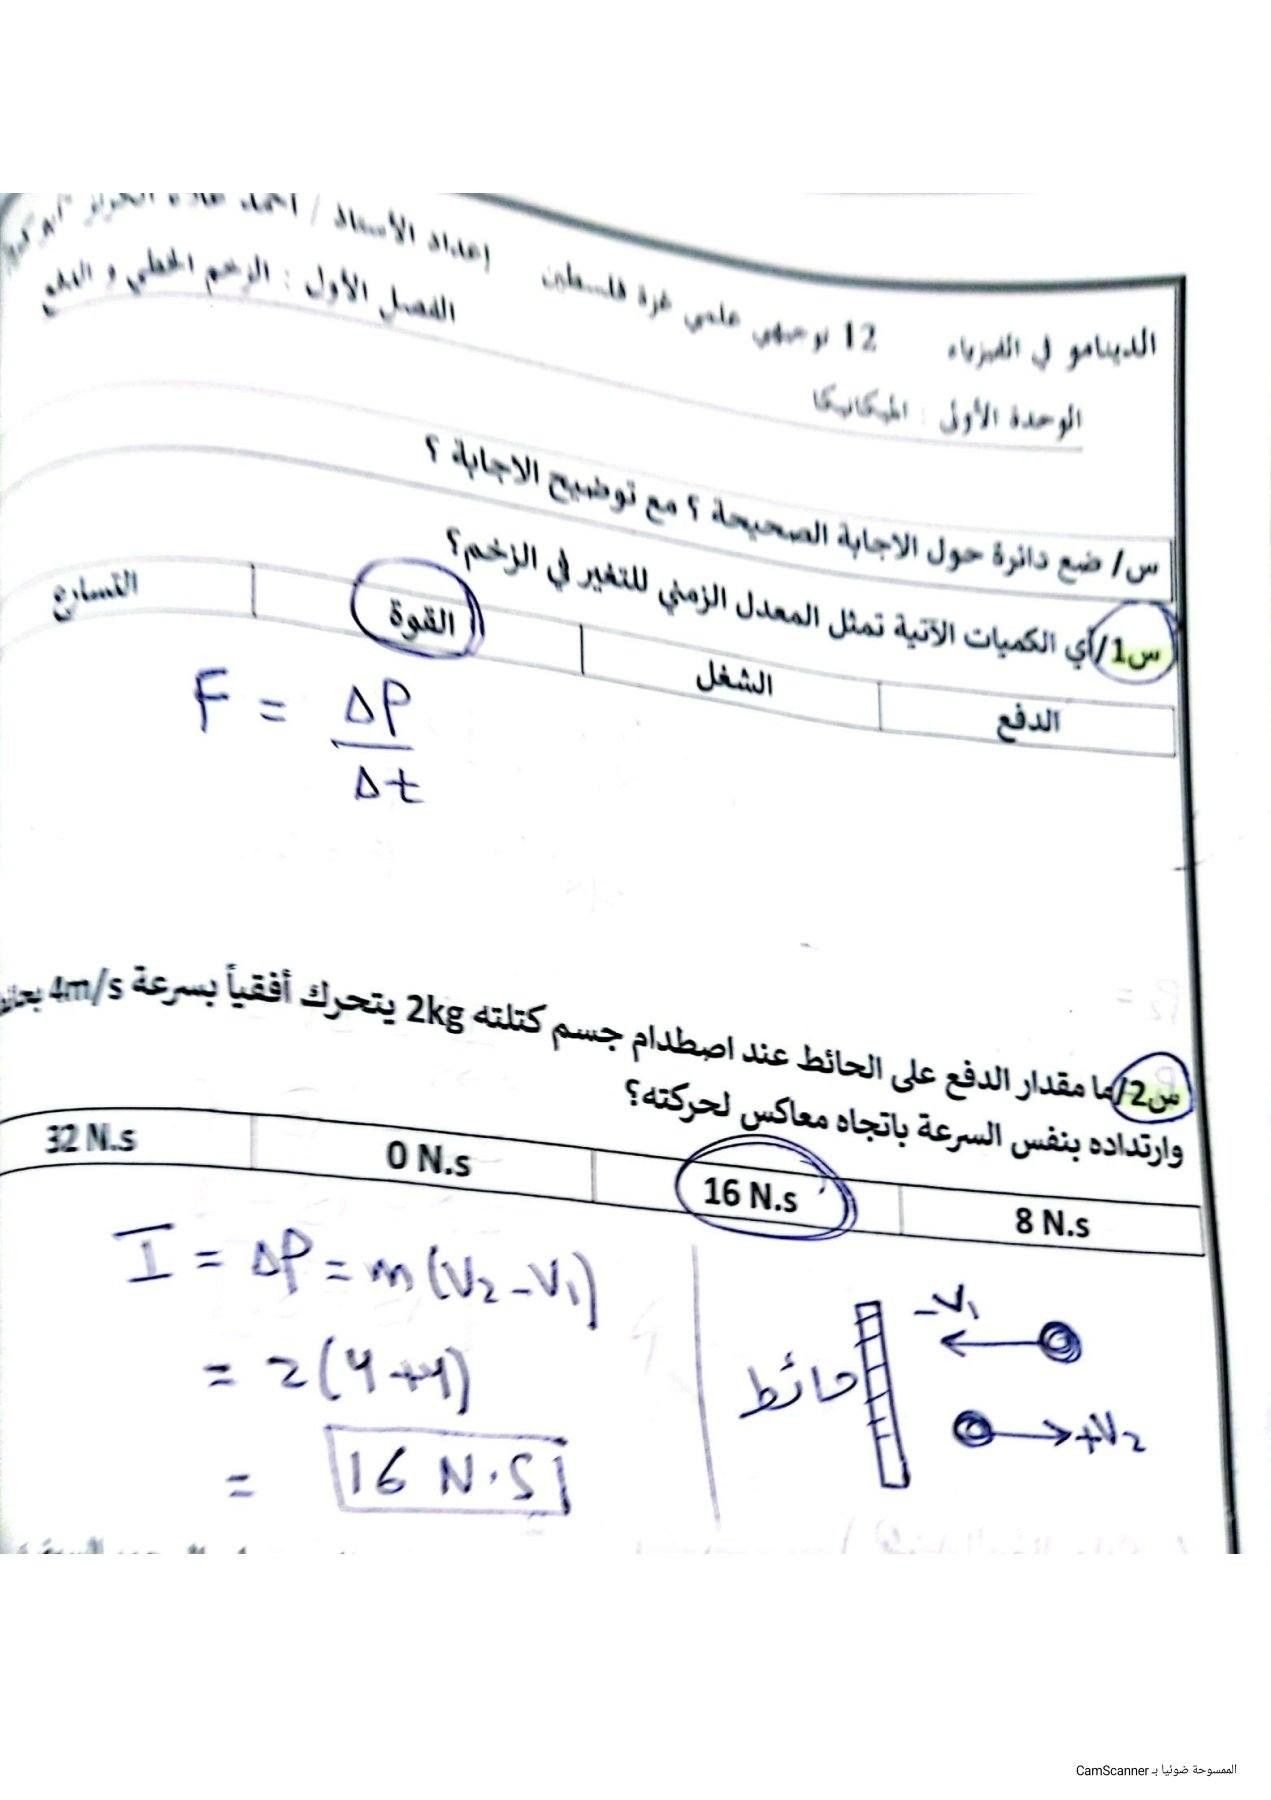 الدينامو في الفيزياء 12 توجيهي علمي غزة فلسطين إعداد الأستاذ / أحمد
الوحدة الأولى : الميكانيكا الفصل الأول : الزخم الخطي و الدفع
س/ ضع دائرة حول الاجابة الصحيحة ؟ مع توضيح الاجابة ؟
س1/أي الكميات الآتية تمثل المعدل الزمني للتغير في الزخم؟
الدفع الشغل القوة التسارع
F = ΔP / Δt
س2/ما مقدار الدفع على الحائط عند اصطدام جسم كتلته 2kg يتحرك أفقياً بسرعة 4m/s
وارتداده بنفس السرعة باتجاه معاكس لحركته؟
8 N.s 16 N.s 0 N.s 32 N.s
I = ΔP = m(V2 - V1)
= 2(4+4)
= 16 N.S
حائط
-V1
+V2
الممسوحة ضوئيا بـ CamScanner